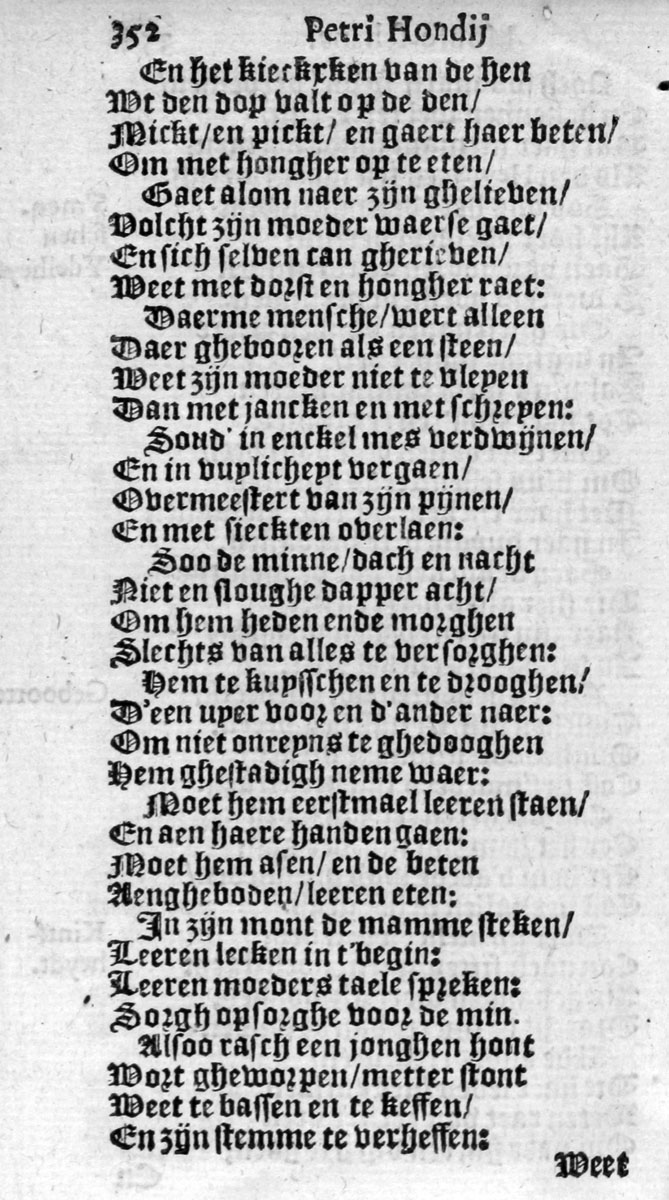 352 Petri Hondij
En het kieckxken van de hen
Wt den dop valt op de den/
Mickt/en pickt/ en gaert haer beten/
Om met hongher op te eten/
Gaet alom naer zijn ghelieven/
Volcht zijn moeder waerse gaet/
En sich selven can gherieven/
Weet met dorst en hongher raet:
Daerme mensche/wert alleen
Daer ghebooren als een steen/
Weet zijn moeder niet te vleyen
Dan met jancken en met schreyen:
Soud' in enckel mes verdwijnen/
En in vuylicheyt vergaen/
Overmeestert van zijn pijnen/
En met sieckten overlaen:
Soo de minne/dach en nacht
Niet en sloughe dapper acht/
Om hem heden ende morghen
Slechts van alles te versorghen:
Hem te kuysschen en te drooghen/
D'een uyer voor en d'ander naer:
Om niet onreyns te ghedooghen
Hem ghestadigh neme waer:
Moet hem eerstmael leeren staen/
En aen haere handen gaen:
Moet hem asen/ en de beten
Aengheboden/leeren eten:
In zijn mont de mamme steken/
Leeren lecken in t'begin:
Leeren moeders taele spreken:
Sorgh op sorghe voor de min.
Alsoo rasch een jonghen hont
Wort gheworpen/metter stont
Weet te bassen en te keffen/
En zijn stemme te verheffen:
Weet